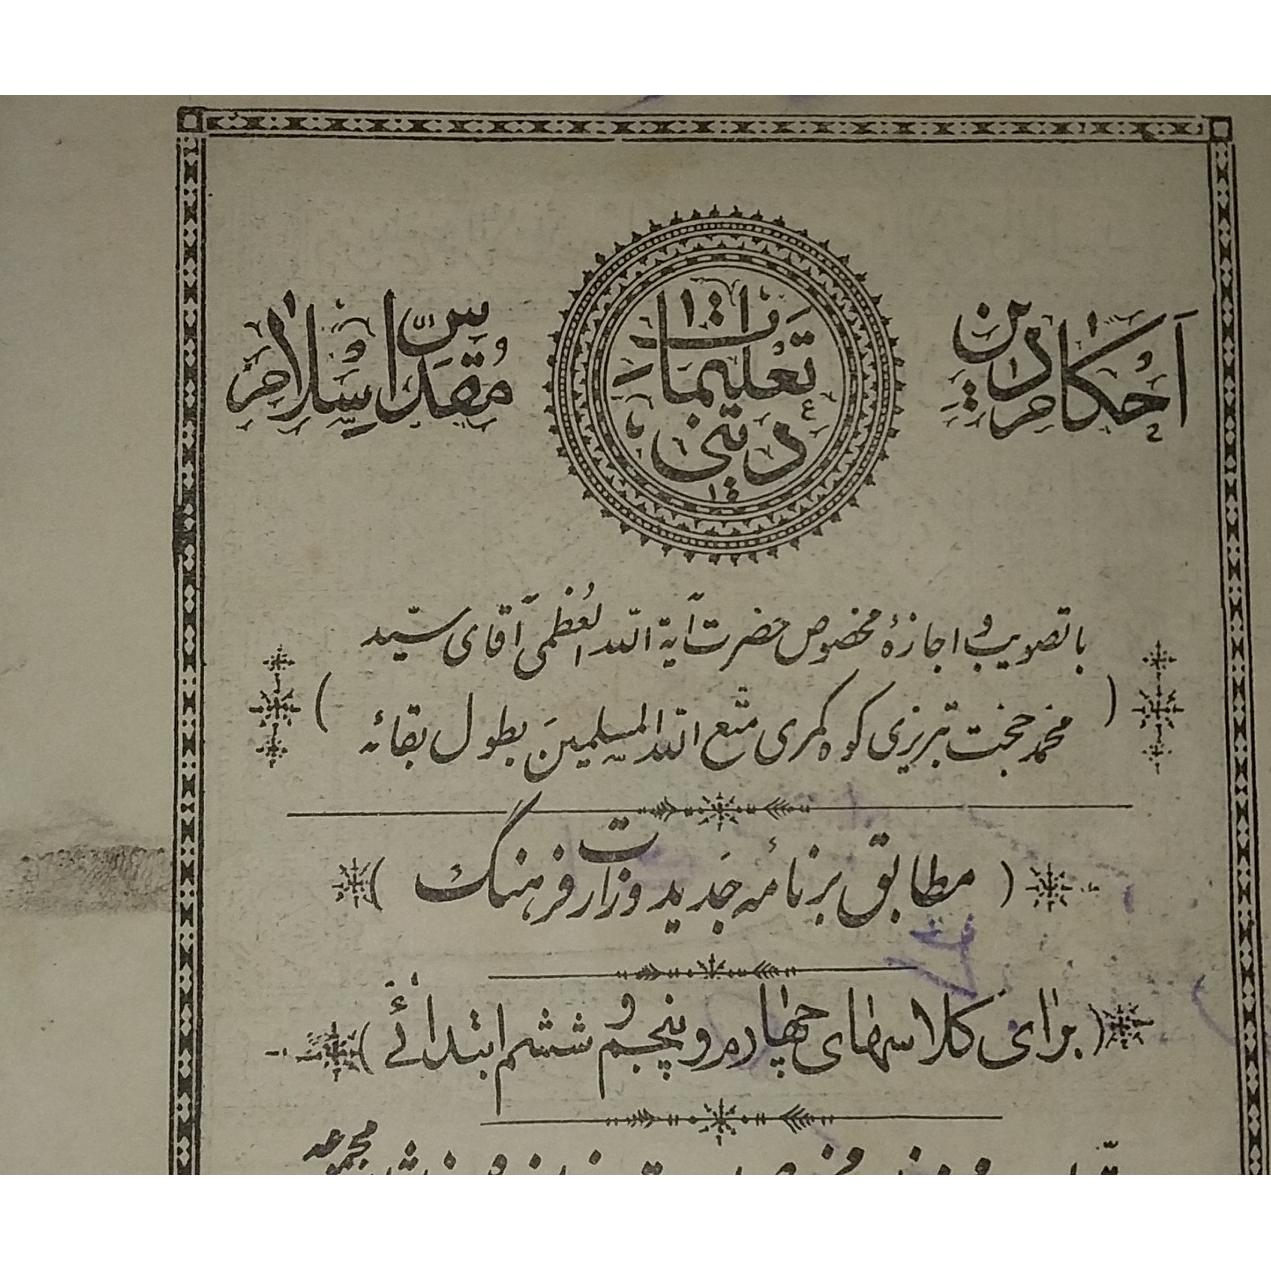 احکام دین
تعلیمات
دینی
مقدس اسلام
با تصویب و اجازهٔ مخصوص حضرت آیة الله العظمی آقای سیّد
( محمد حجت تبریزی کوه کمری متع الله المسلمین بطول بقائه )
( مطابق برنامهٔ جدید وزارت فرهنگ )
( برای کلاسهای چهارم و پنجم و ششم ابتدائی )
مجموعه